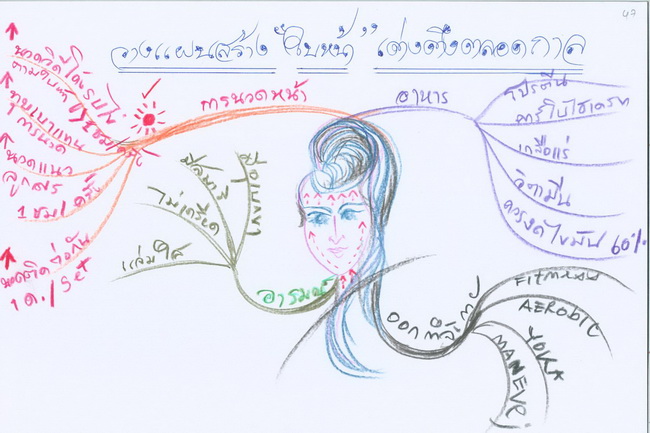 47
วางแผนสร้าง "ใบหน้า" เต่งตึงตลอดกาล
การนวดหน้า
นวดวิถีโค้งรูปไข่
ทุบเบาแทน
การนวด
นวดแนว
ลูกศร
1 ชม/ครั้ง
นวดติดต่อกัน
1 ด./Set
อาหาร
โปรตีน
คาร์โบไฮเดรท
เกลือแร่
วิตามิน
ควรงดไขมัน 60%
อารมณ์
ไม่เครียด
แจ่มใส
ออกกำลังกาย
FITNESS
AEROBIC
YOKA